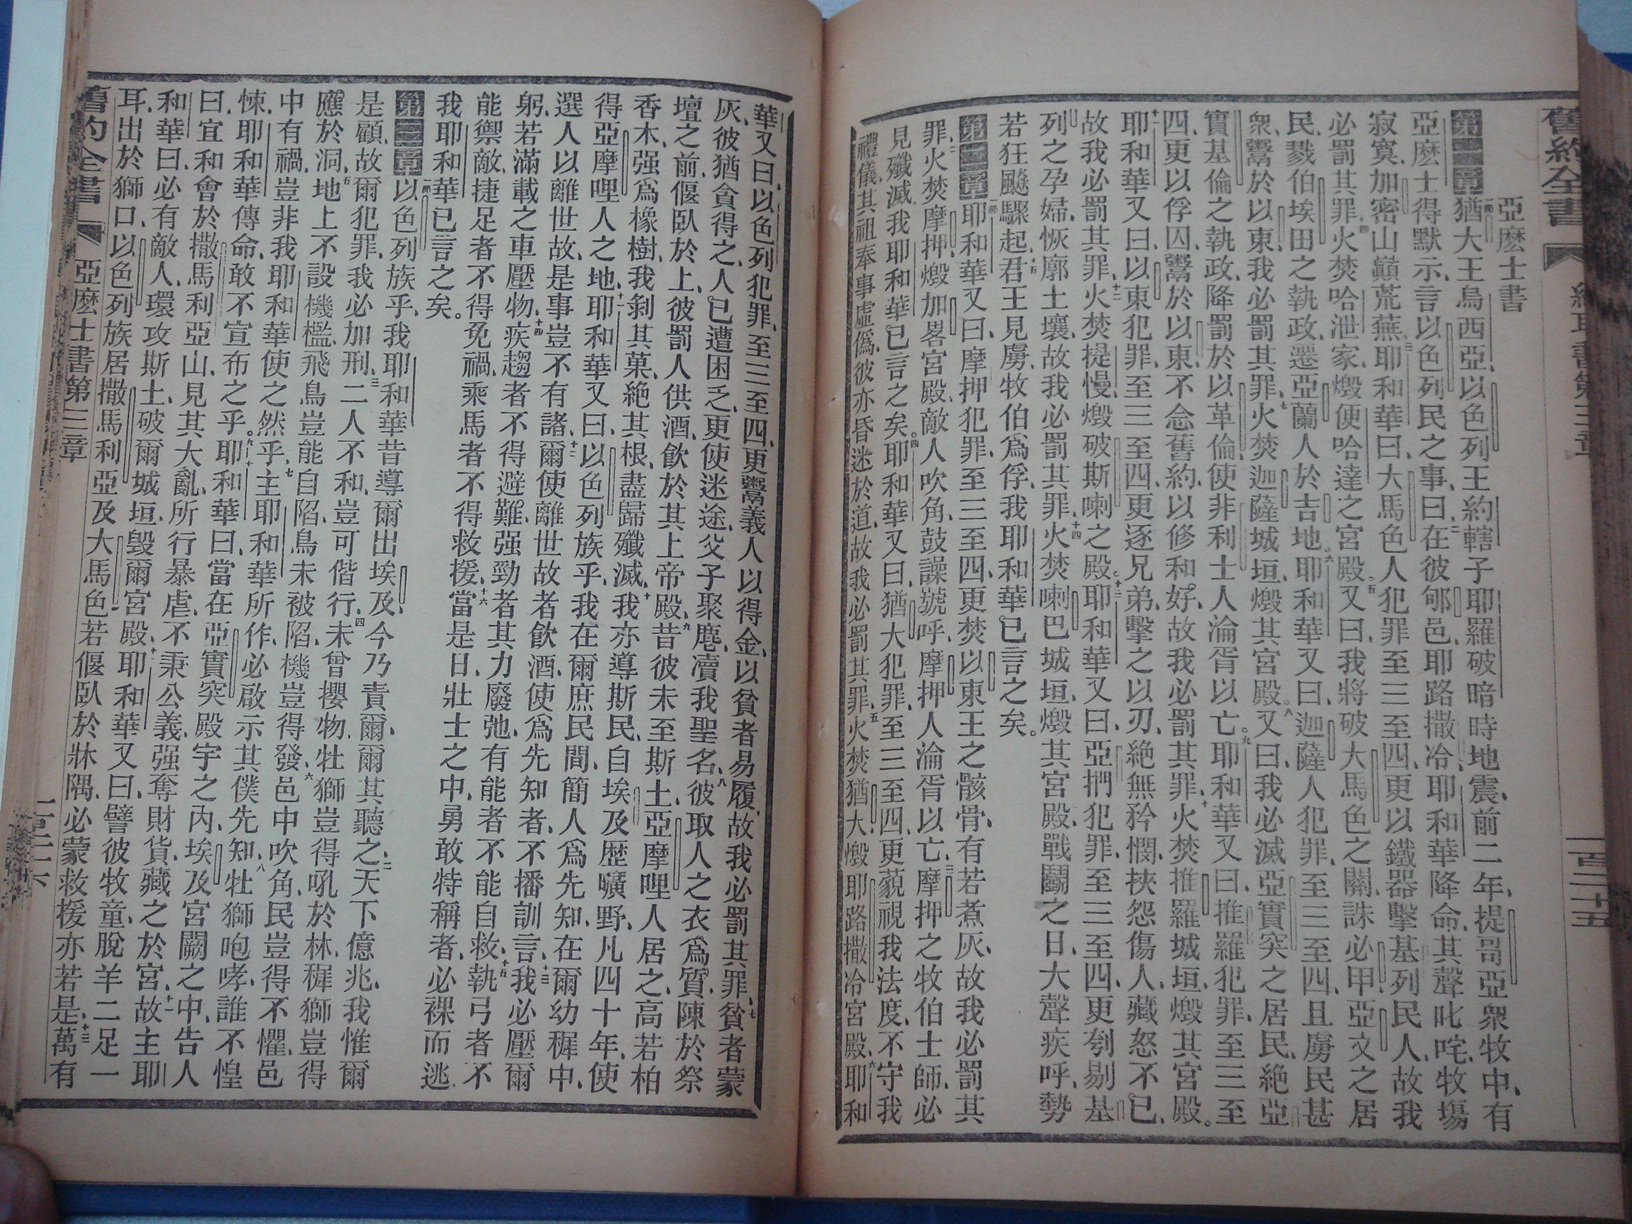 亞麽士書
第一章猶大王烏西亞以色列王約轄子耶羅破暗時地震前二年提哥亞衆牧中有
亞麽士得默示言以色列民之事曰在彼郇邑耶路撒冷耶和華降命其聲叱咤牧場
寂寞加密山巔荒蕪耶和華曰大馬色人犯罪至三至四更以鐵器擊基列民人故我
必罰其罪火焚哈泄家燬便哈達之宮殿又曰我將破大馬色之關誅必甲亞文之居
民戮伯埃田之執政遷亞蘭人於吉地耶和華又曰迦薩人犯罪至三至四且虜民甚
衆鬻於以東我必罰其罪火焚迦薩城垣燬其宮殿又曰我必滅亞實突之居民絕亞
實基倫之執政降罰於以革倫使非利士人淪胥以亡耶和華又曰推羅犯罪至三至
四更以俘囚鬻於以東不念舊約以修和好故我必罰其罪火焚推羅城垣燬其宮殿
耶和華又曰以東犯罪至三至四更逐兄弟擊之以刃絕無矜憫挾怨傷人藏怒不已
故我必罰其罪火焚提慢燬破斯喇之殿耶和華又曰亞捫犯罪至三至四更刳剔基
列之孕婦恢廓土壤故我必罰其罪火焚喇巴城垣燬其宮殿戰鬭之日大聲疾呼勢
若狂飈驟起君王見虜牧伯爲俘我耶和華已言之矣
第二章耶和華又曰摩押犯罪至三至四更焚以東王之骸骨有若煮灰故我必罰其
罪火焚摩押燬加畧宮殿敵人吹角鼓譟號呼摩押人淪胥以亡摩押之牧伯士師必
見殲滅我耶和華已言之矣耶和華又曰猶大犯罪至三至四更藐視我法度不守我
禮儀其祖奉事虛僞彼亦昏迷於道故我必罰其罪火焚猶大燬耶路撒冷宮殿耶和
華又曰以色列犯罪至三至四更鬻義人以得金以貧者易履故我必罰其罪貧者蒙
灰彼猶貪得之人已遭困乏更使迷途父子聚麀凟我聖名彼取人之衣爲質陳於祭
壇之前偃臥於上彼罰人供酒飲於其上帝殿昔彼未至斯土亞摩哩人居之高若柏
香木强爲橡樹我剝其菓絕其根盡歸殲滅我亦導斯民自埃及歷曠野凡四十年使
得亞摩哩人之地耶和華又曰以色列族乎我在爾庶民間簡人爲先知在爾幼穉中
選人以離世故是事豈不有諸爾使離世故者飲酒使爲先知者不播訓言我必壓爾
躬若滿載之車壓物疾趨者不得避難强勁者其力廢弛有能者不能自救執弓者不
能禦敵捷足者不得免禍乘馬者不得救援當是日壯士之中勇敢特稱者必裸而逃
我耶和華已言之矣
第三章以色列族乎我耶和華昔導爾出埃及今乃責爾爾其聽之天下億兆我惟爾
是顧故爾犯罪我必加刑二人不和豈可偕行未曾攖物牡獅豈得吼於林穉獅豈得
應於洞地上不設機檻飛鳥豈能自陷鳥未被陷機豈得發邑中吹角民豈得不懼邑
中有禍豈非我耶和華使之然乎主耶和華所作必啟示其僕先知牡獅咆哮誰不惶
悚耶和華傳命敢不宣布之乎耶和華曰當在亞實突殿宇之內埃及宮闕之中告人
曰宜和會於撒馬利亞山見其大亂所行暴虐不秉公義强奪財貨藏之於宮故主耶
和華曰必有敵人環攻斯土破爾城垣毁爾宮殿耶和華又曰譬彼牧童脫羊二足一
耳出於獅口以色列族居撒馬利亞及大馬色若偃臥於牀隅必蒙救援亦若是萬有
舊約全書 亞麽士書第三章 一百二十六